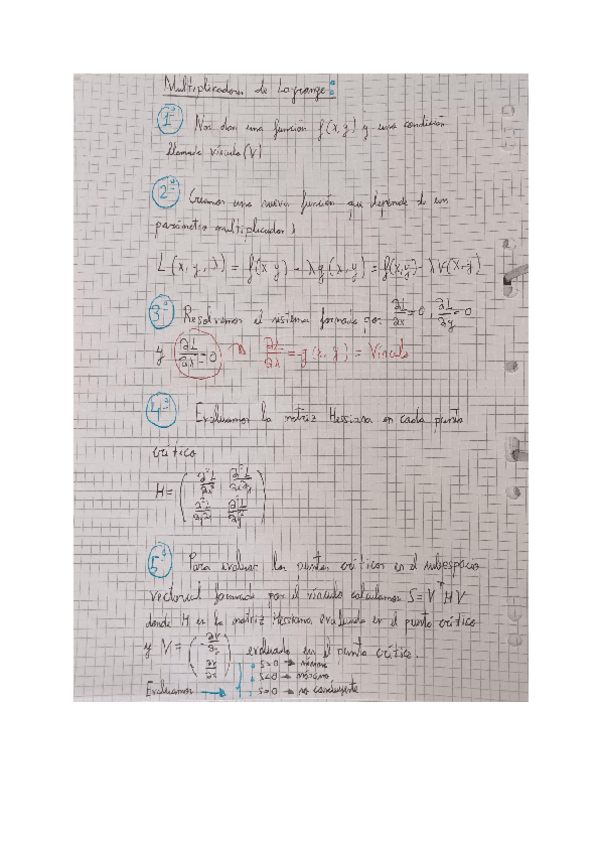 Multiplicadores de Lagrange:
1º Nos dan una función f(x,y) y una condición
llamada vínculo (V)
2º Creamos una nueva función que depende de un
parámetro multiplicador λ
L(x, y, λ) = f(x,y) - λg(x,y) = f(x,y) - λV(x,y)
3º Resolvemos el sistema formado por ∂L/∂x = 0, ∂L/∂y = 0
y ∂L/∂λ = 0 → ∂L/∂λ = -g(x,y) = Vínculo
4º Evaluamos la matriz Hessiana en cada punto
crítico
H = ( ∂²L/∂x² ∂²L/∂x∂y
∂²L/∂y∂x ∂²L/∂y² )
5º Para evaluar los puntos críticos en el subespacio
vectorial formado por el vínculo calculamos S = VᵀHV
donde H es la matriz Hessiana evaluada en el punto crítico
y V = ( -∂V/∂y
∂V/∂x ) evaluado en el punto crítico.
S>0 → mínimo
S<0 → máximo
Evaluamos → S=0 → no concluyente